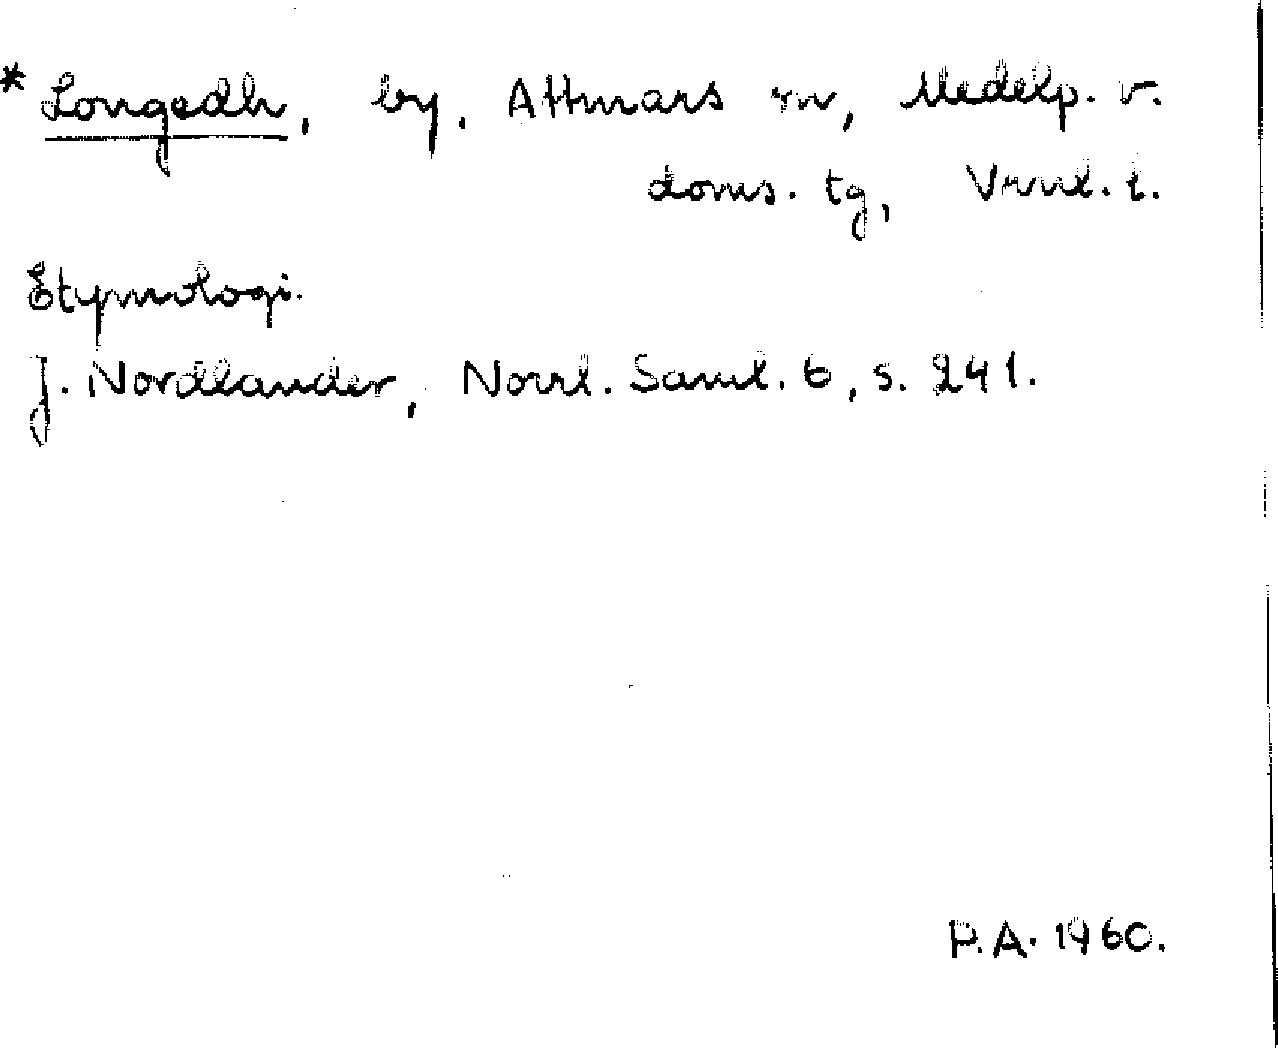 * Longedh, by, Attmars sn, Medelp. v.
doms. tg, Vrnl. l.
Etymologi.
J. Nordlander, Norrl. Saml. 6, s. 241.
P.A. 1960.